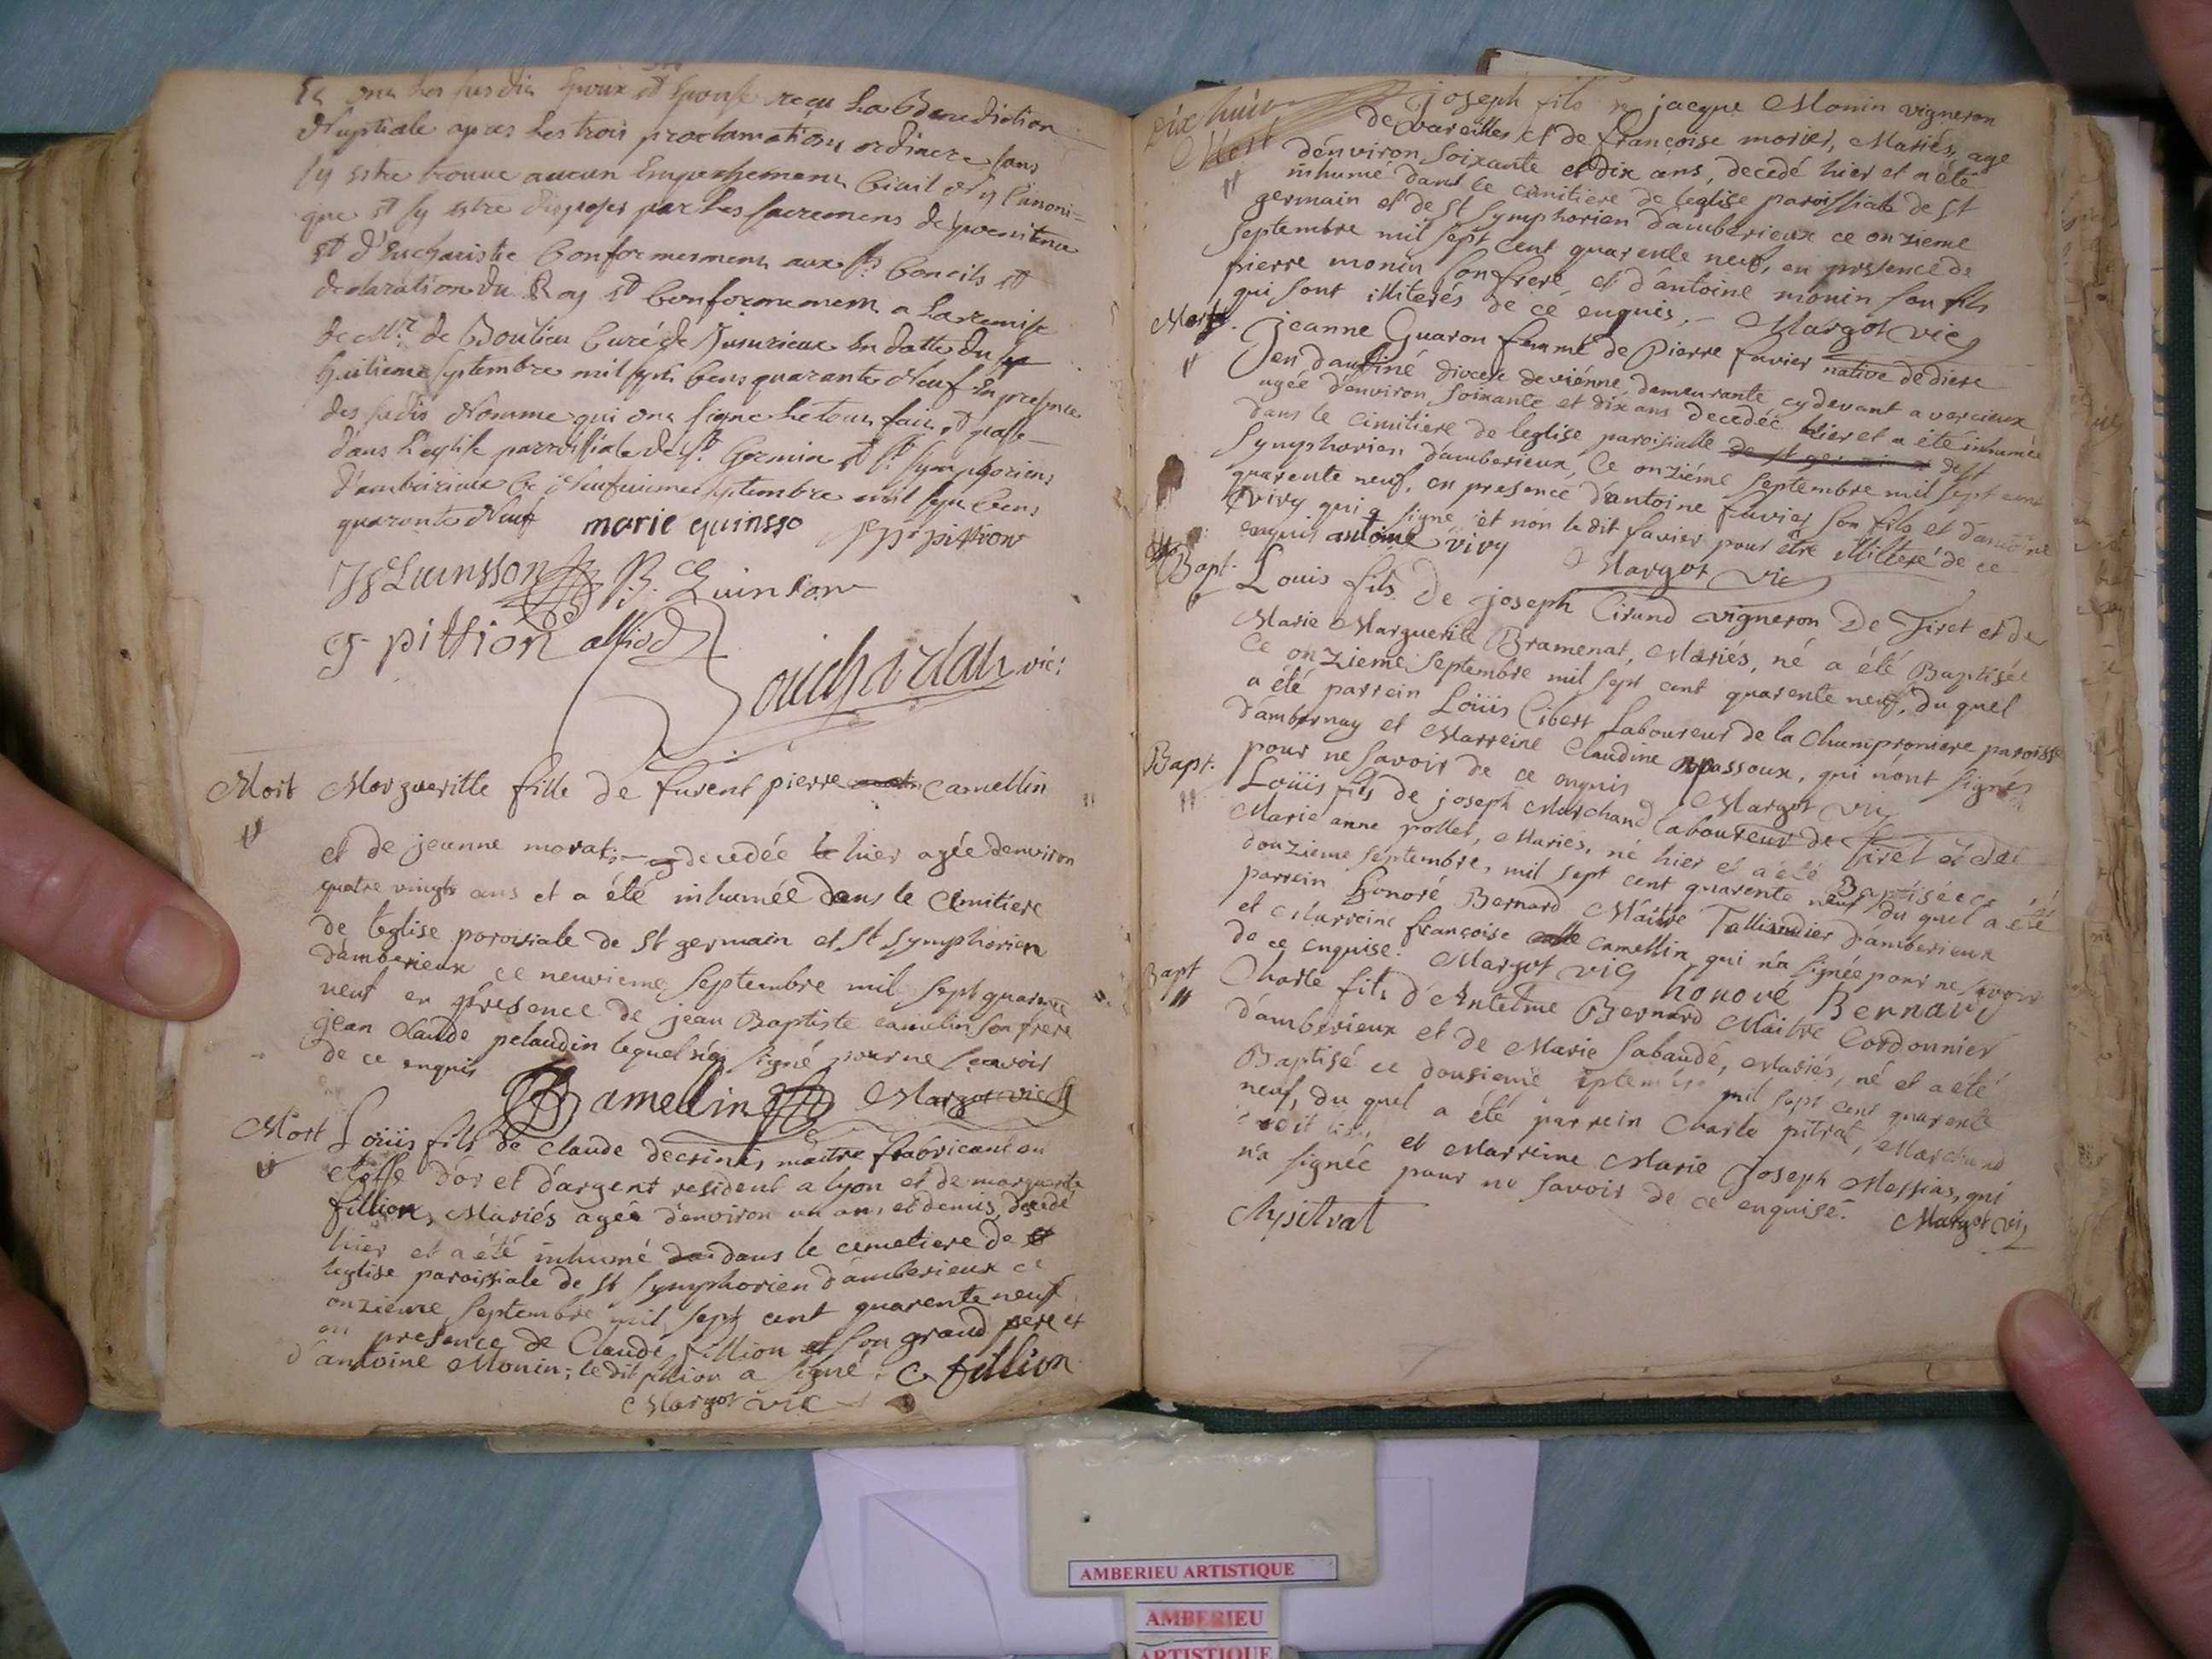 ont les susdits Epoux et Epouse reçu la Benediction
Nuptiale apres les trois proclamations ordinere sans
sy estre trouve aucun Empeschement Civil Ny Canoni=
que et sy estre disposes par les sacremens de poenitence
et d'Eucharistie Conformement aux sts Concils et
declaration du Roy et Conformement a la remise
de Mr. de Boulieu Curé de Jusurieux en datte du
huitieme septembre mil sept Cens quarante Neuf En presence
des susdis Nomme qui ont signe le tout fait et passe
dans l'eglise parroissiale de st. Germin et st. Symphoriens
d'ambeirieux Ce Neufvieme septembre mil sept Cens
quarante Neuf marie quinsso pittion
Quinsson B. Quinson
pittion alliod
vic:
Mort Margueritte fille de furent pierre Camellin
et de jeanne morat decedée hier agée denviron
quatre vingts ans et a été inhumée dans le Cimitiere
de leglise paroisiale de St germain et St Symphorien
d'amberieux ce neuvieme septembre mil sept quarente
neuf en presence de jean Baptiste camelin son frere
jean claude pelaudin lequel signé pour ne sçavoir
de ce enquis
Camellin Margot vic
Mort Loüis fils de claude decrinis maitre fabricant en
etoffe d'or et d'argent resident a lyon et de marguerite
fillion, Mariés agée d'environ un an, et demis, decedé
hier et a été inhumé dans le cemetiere de
leglise paroissiale de St Symphorien d'amberieux ce
onzieme septembre mil sept cent quarente neuf
en presence de Claude fillion son grand pere et
d'antoine Monin; ledit filion a signé. C fillion
Margot vic
Dix huit
Mort joseph fils jacque Monin vigneron
de Vareilles et de françoise morier, Mariés, age
d'énviron soixante et dix ans, decedé hier et a été
inhumé dans le cimitiere de leglise paroissiale de St
germain et de St Symphorien d'amberieux ce onzieme
septembre mil sept cent quarente neuf, en presence de
pierre monin son frere, et d'antoine monin son fils
qui sont illiterés de cé enquis, - Margot vic
Morte. jeanne Guaron femme de pierre favier native de diere
en daufiné diocese de viénne, demeurante cy devant a vercieux
agée d'environ soixante et dix ans decedée hier et a été inhumée
dans le cimitiere de leglise paroisialle de st germain et de St
Symphorien d'amberieux, Ce onziéme septembre mil sept cent
quarente neuf, en presence d'antoine favier son fils et d'antoine
vivy qui a signe et non le dit favier pour être illiteré de ce
enquis antoine vivy Margot vic
Bapt. Louis fils De joseph Cirand vigneron De Tiret et de
Marie Marguerite Bramenat, Mariés, né a été Baptisée
Ce onzieme septembre mil sept cent quarente neuf, du quel
a été parrein Loüis Cibert Laboureur de la Championiere paroisse
d'ambornay et Marreine Claudine passoux, qui n'ont signés
pour ne savoir de ce enquis Margot vic
Bapt. Loüis fils de joseph Marchand laboureur de Tiret et de
Marie anne pollet, Mariés, né hier et a été Baptisée ce
douzieme septembre, mil sept cent quarente neuf du quel a été
parrein honoré Bernard Maitre Talliandier d'amberieux
et Marreine françoise camellin qui n'a signée pour ne savoir
de ce enquise. Margot vic honoré Bernard
Bapt Charle fils d'Antelme Bernard Maitre Cordonnier
d'amberieux et de Marie Sabaudé, Mariés, né et a été
Baptisé ce dousieme septembre mil sept cent quarente
neuf, du quel a été parrein Charle pitrat, Marchand
et Marreine Marie Joseph Messias, qui
n'a signée pour ne savoir de ce enquise.
Cpitrat Margot vic
AMBERIEU ARTISTIQUE
AMBERIEU
ARTISTIQUE